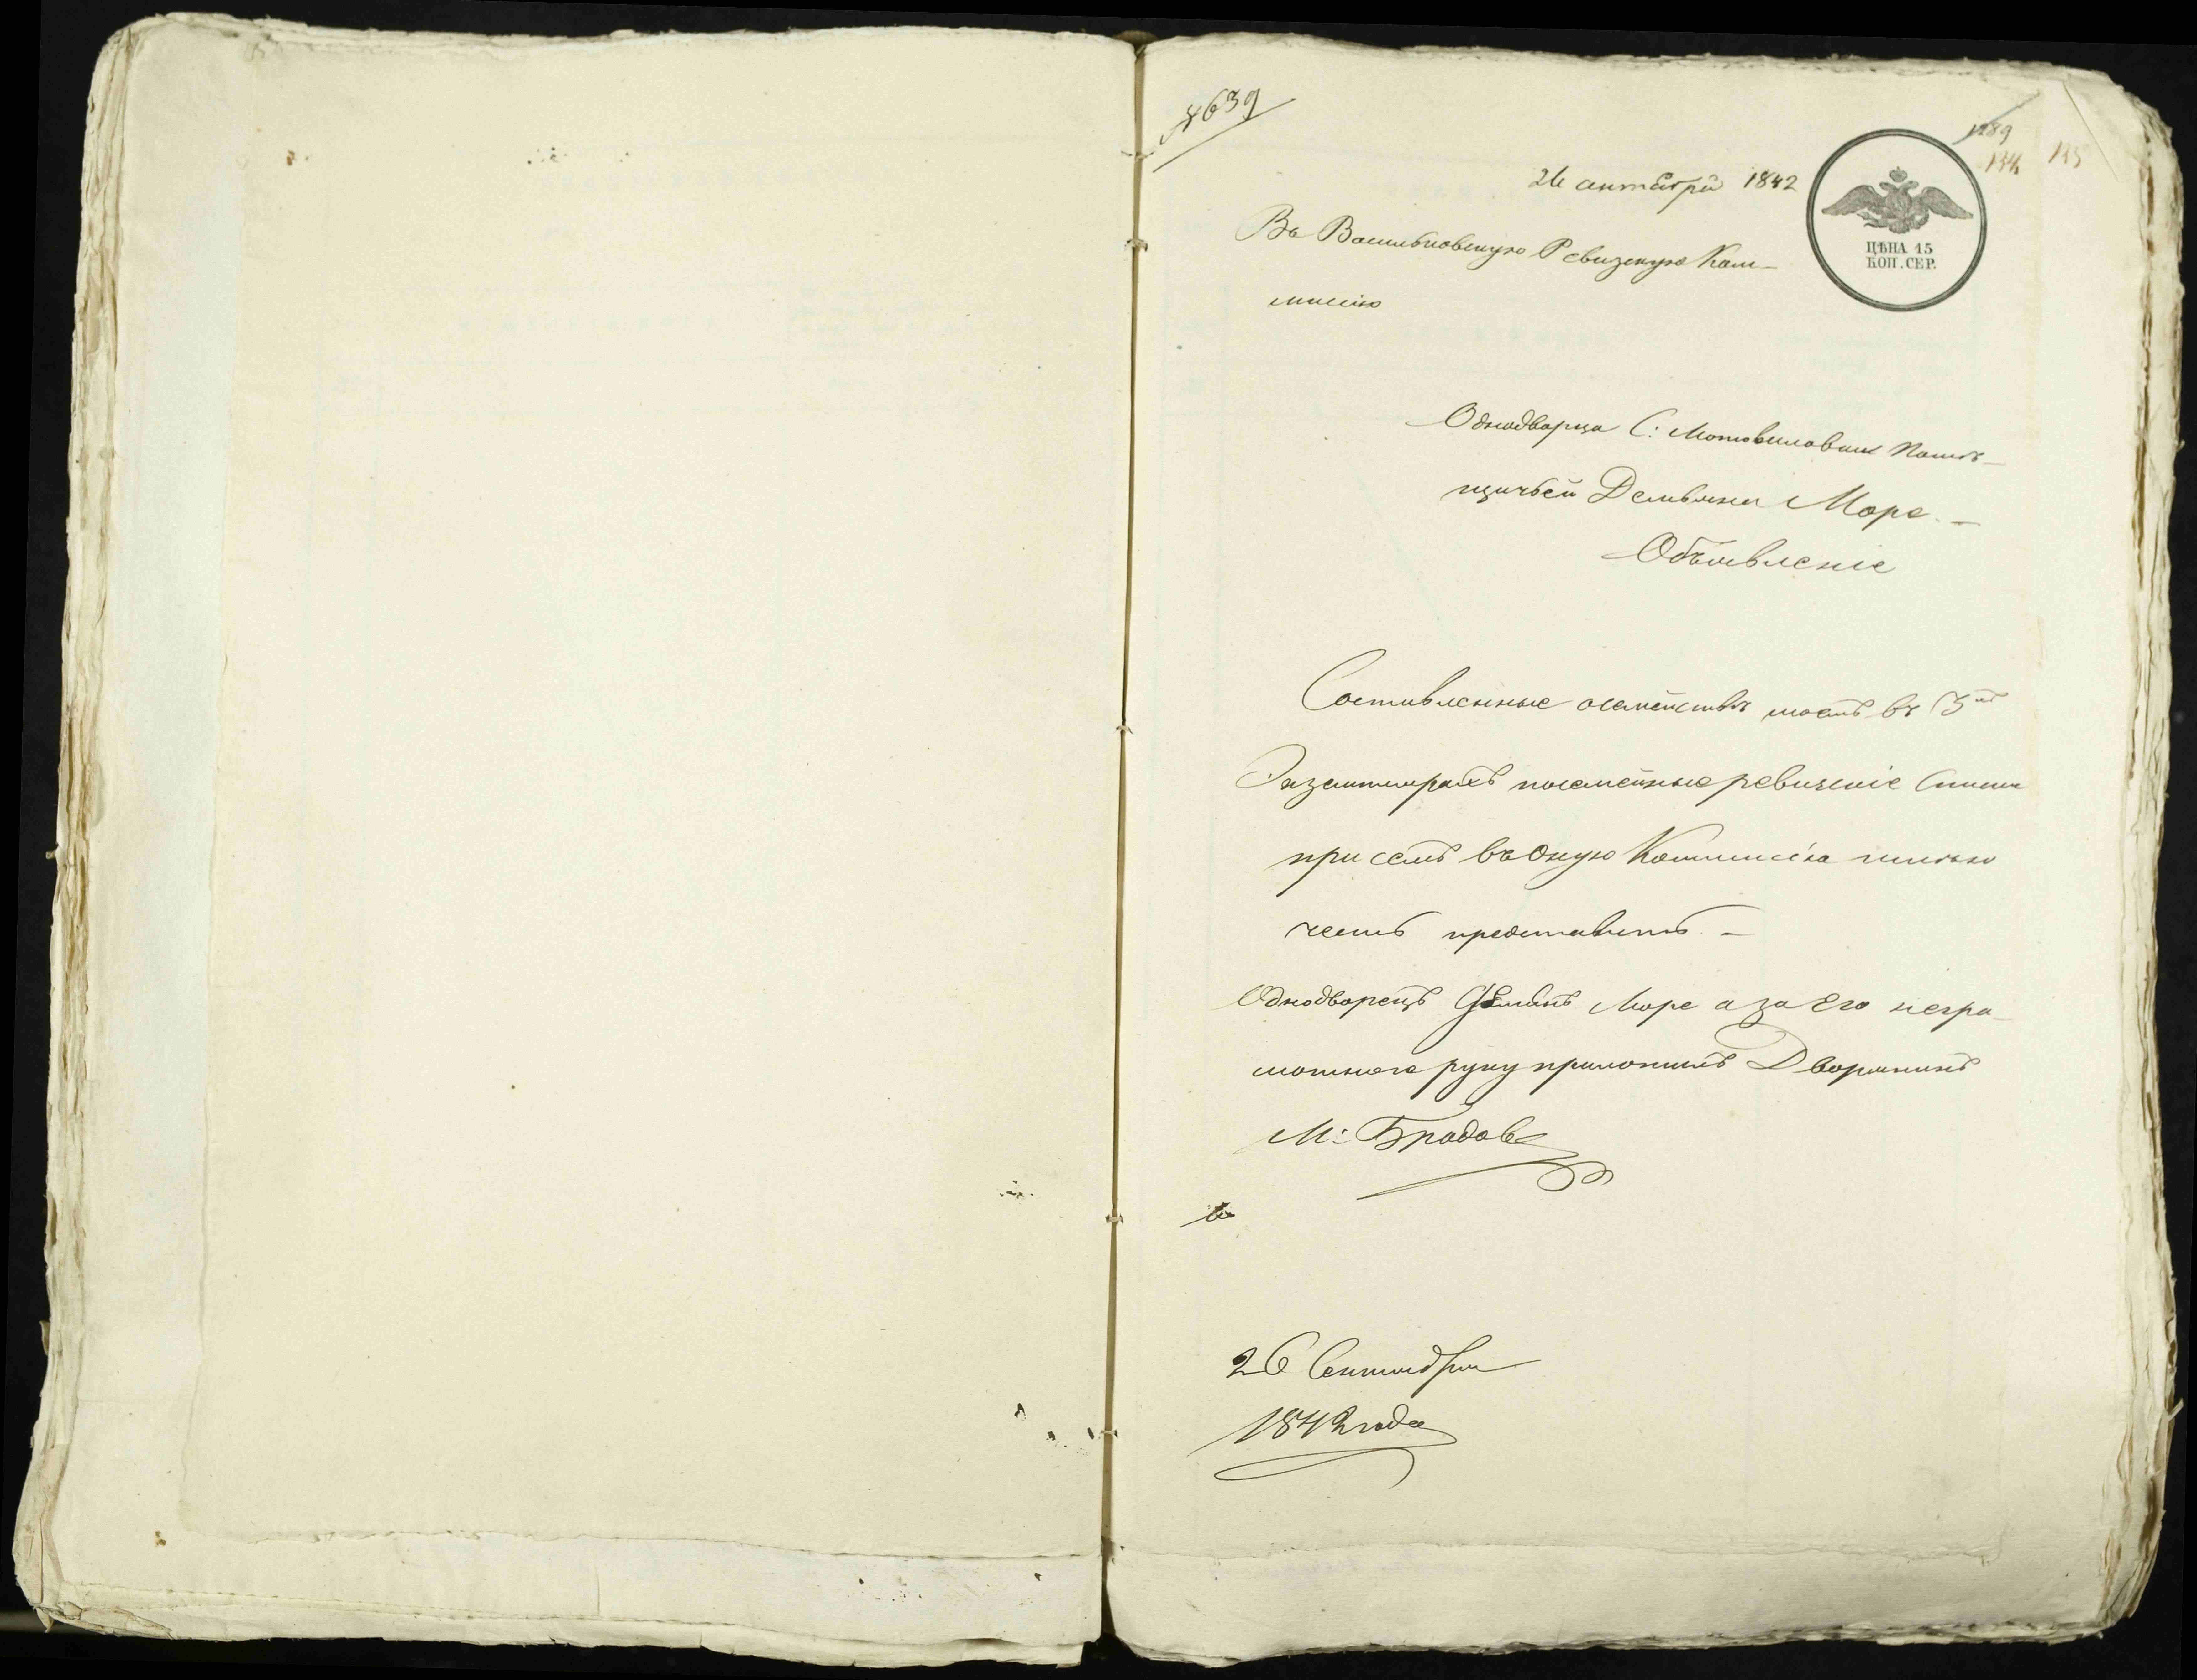 4639
1289
134 135
26 сентября 1842
ЦѢНА 15
КОП. СЕР.
Въ Васильковскую Ревизкую Ком-
миссію
Однодворца С: Мотовиловки Помѣ-
щичьей Демьяна Море. -
Объявленіе
Составленные о семействѣ моемъ въ 3хъ
Экземплярахъ посемейные ревизскіе Списки
при семъ въ Оную Коммиссію имѣю
честь представить. -
Однодворецъ Демянъ Море а за Его негра-
мотнаго руку приложилъ Дворянинъ
М:
26 Сентября
1842 года